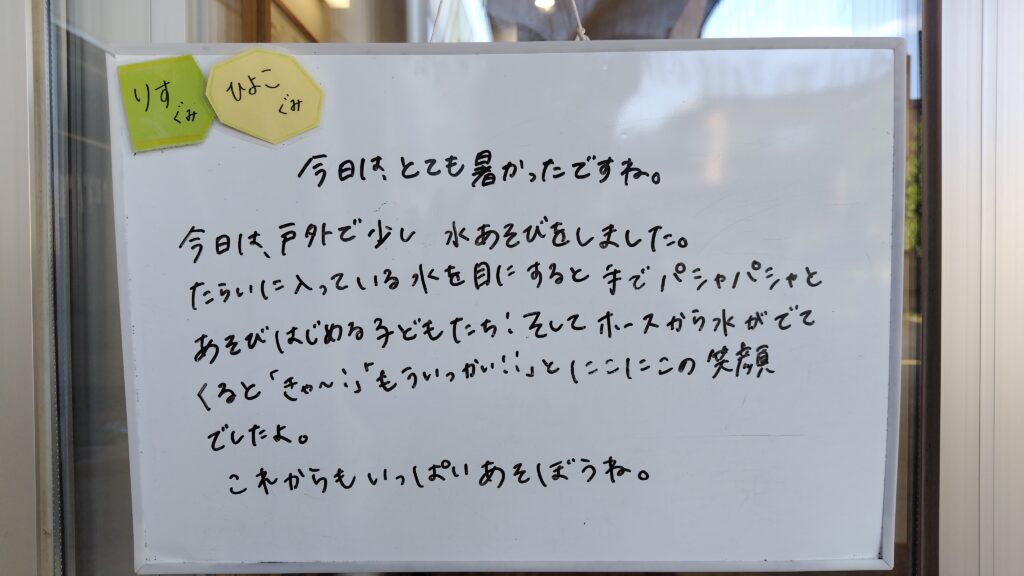 りす
ぐみ
ひよこ
ぐみ
今日は、とても暑かったですね。
今日は、戸外で少し 水あそびをしました。
たらいに入っている水を目にすると手でパシャパシャと
あそびはじめる子どもたち!そしてホースから水がでて
くると「きゃ〜!」「もういっかい!!」とにこにこの笑顔
でしたよ。
これからもいっぱいあそぼうね。